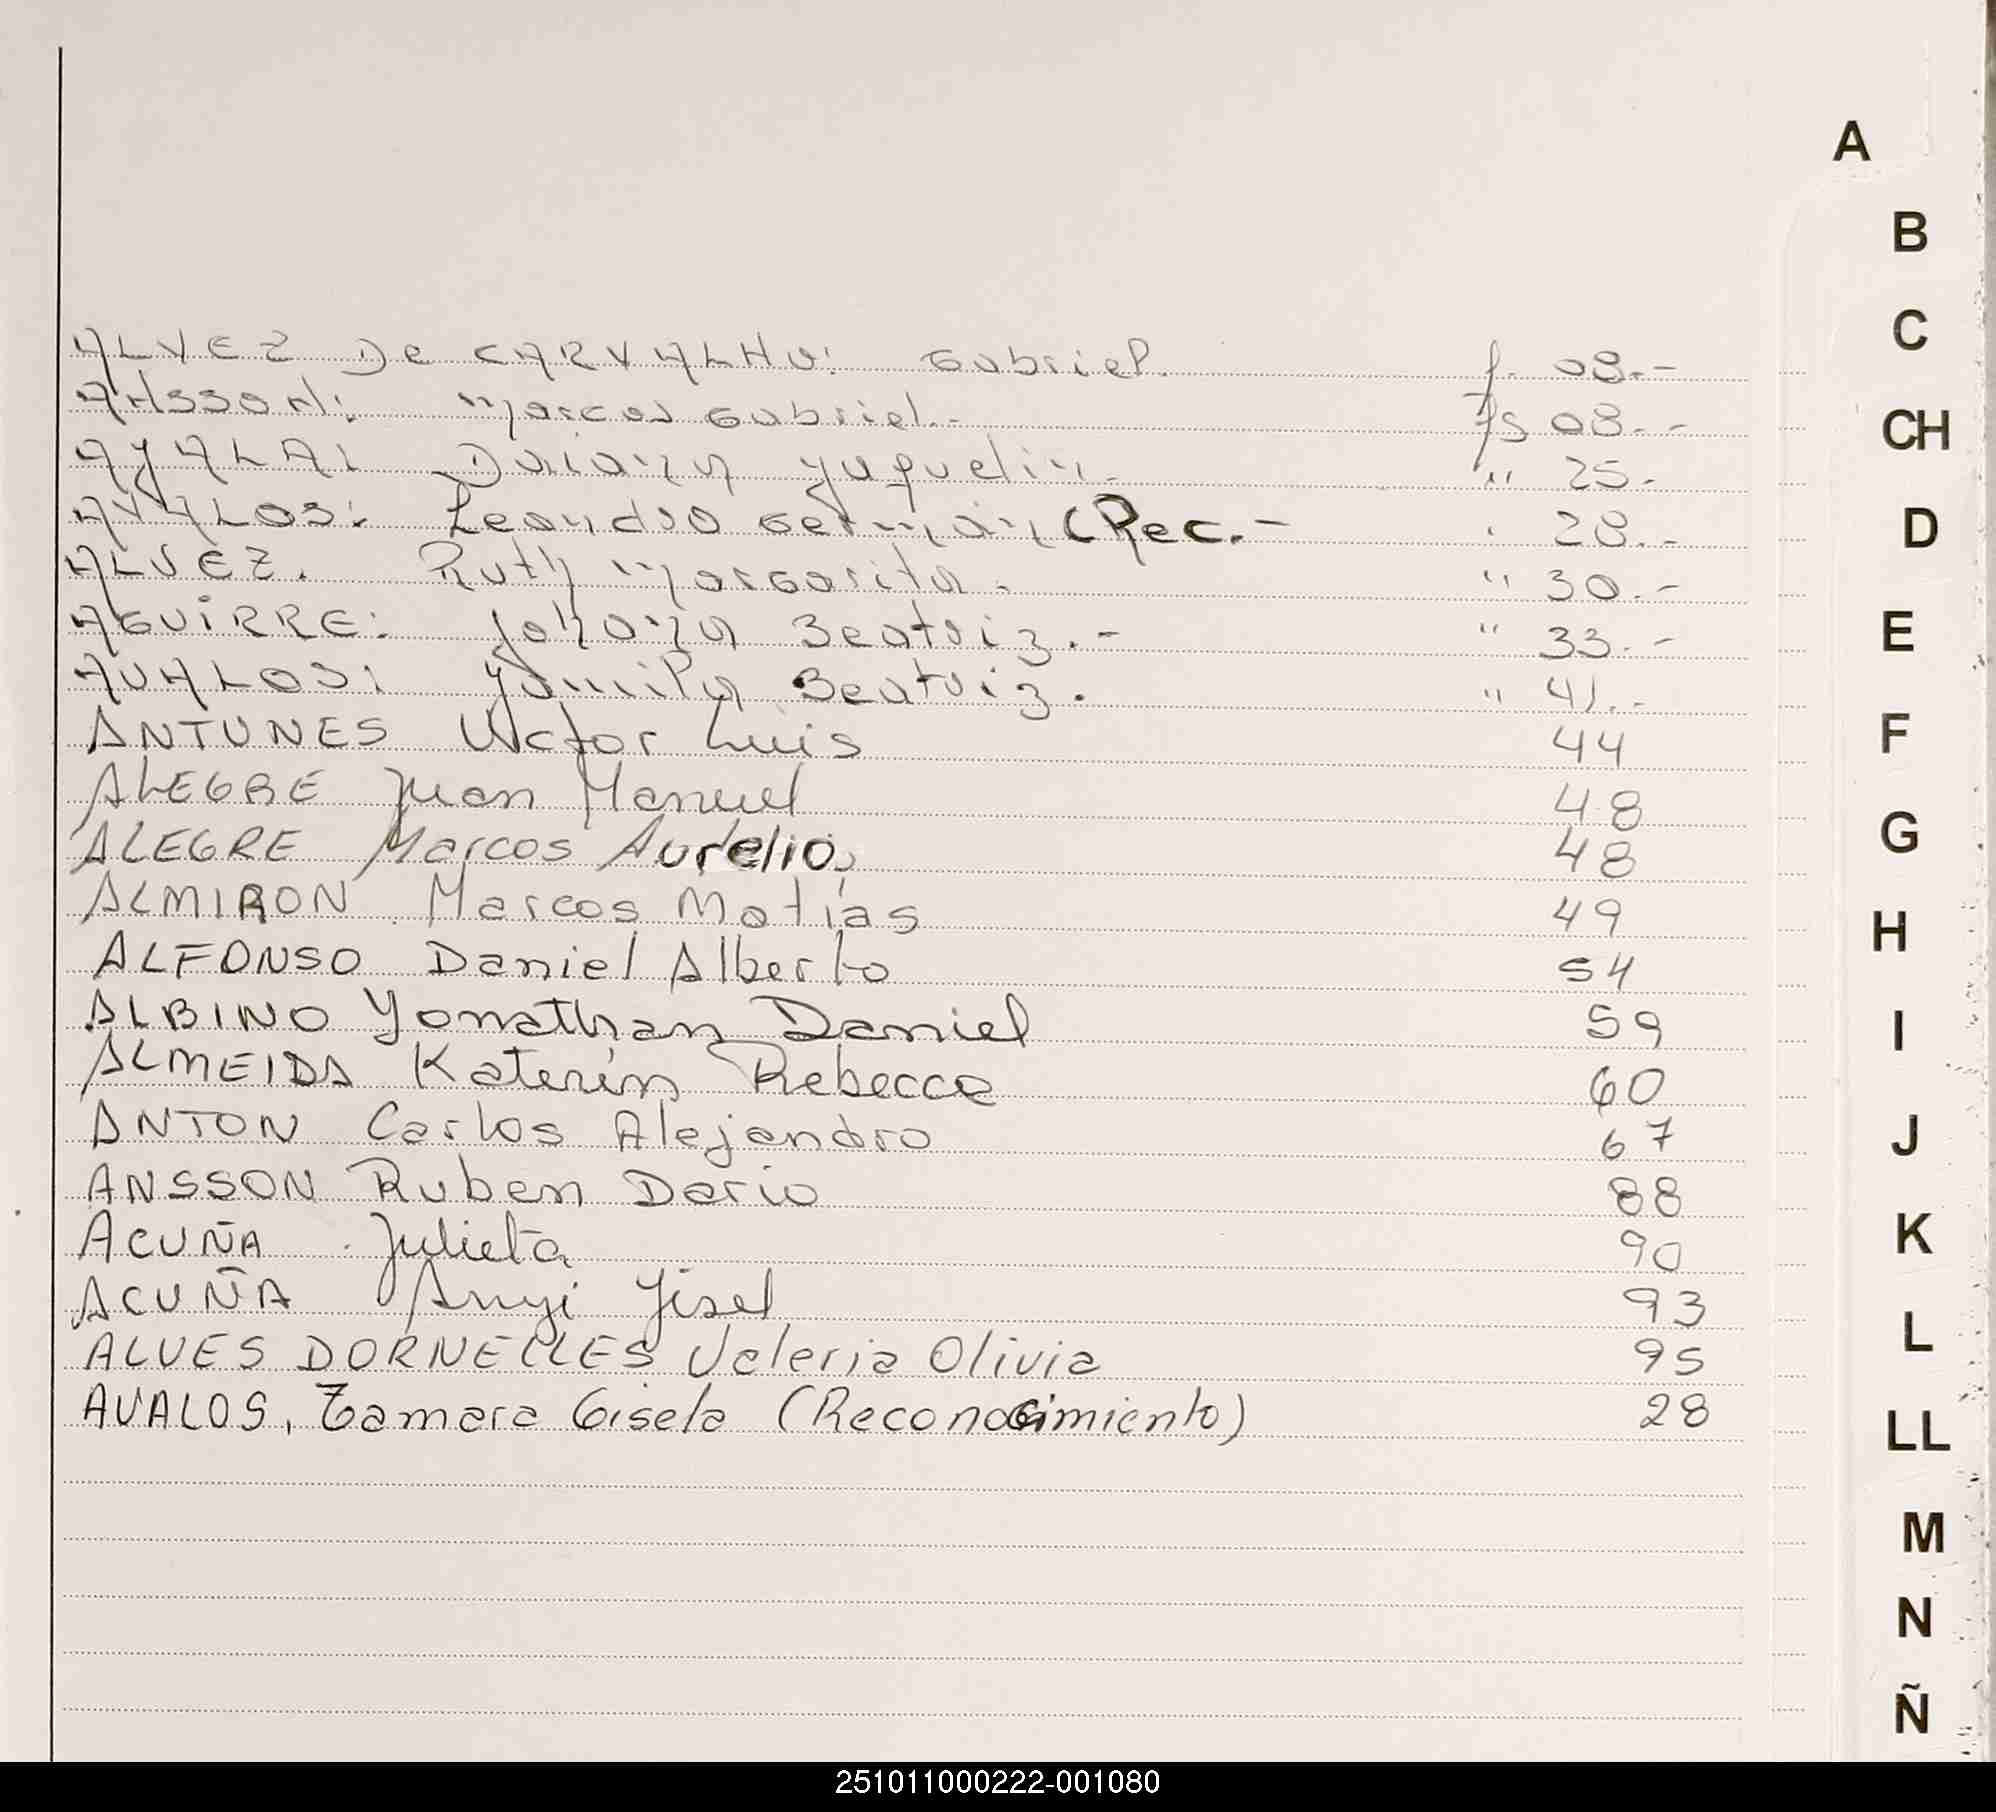 A
B
C
CH
D
E
F
G
H
I
J
K
L
LL
M
N
Ñ
ALVEZ De CARVALHO: Gabriel. f. 08.-
ANSSON: Marcos Gabriel.- fs 08.-
AYALA: Daiana Yaquelin. " 25.-
AVALOS: Leandro Germán (Rec.- " 28.-
ALVEZ. Ruth Margarita. " 30.-
AGUiRRE: Johana Beatriz.- " 33.-
AVALOS: Yamila Beatriz. " 41.-
ANTUNES Victor Luis 44
ALEGRE Juan Manuel 48
ALEGRE Marcos Aurelio 48
ALMIRON Marcos Matías 49
ALFONSO Daniel Alberto 54
ALBINO Yonathan Daniel 59
ALMEIDA Katerin Rebecca 60
ANTON Carlos Alejandro 67
ANSSON Ruben Dario 88
ACUÑA Julieta 90
ACUÑA Anyi Yisel 93
ALVES DORNELLES Valeria Olivia 95
AVALOS, Tamara Gisela (Reconocimiento) 28
251011000222-001080